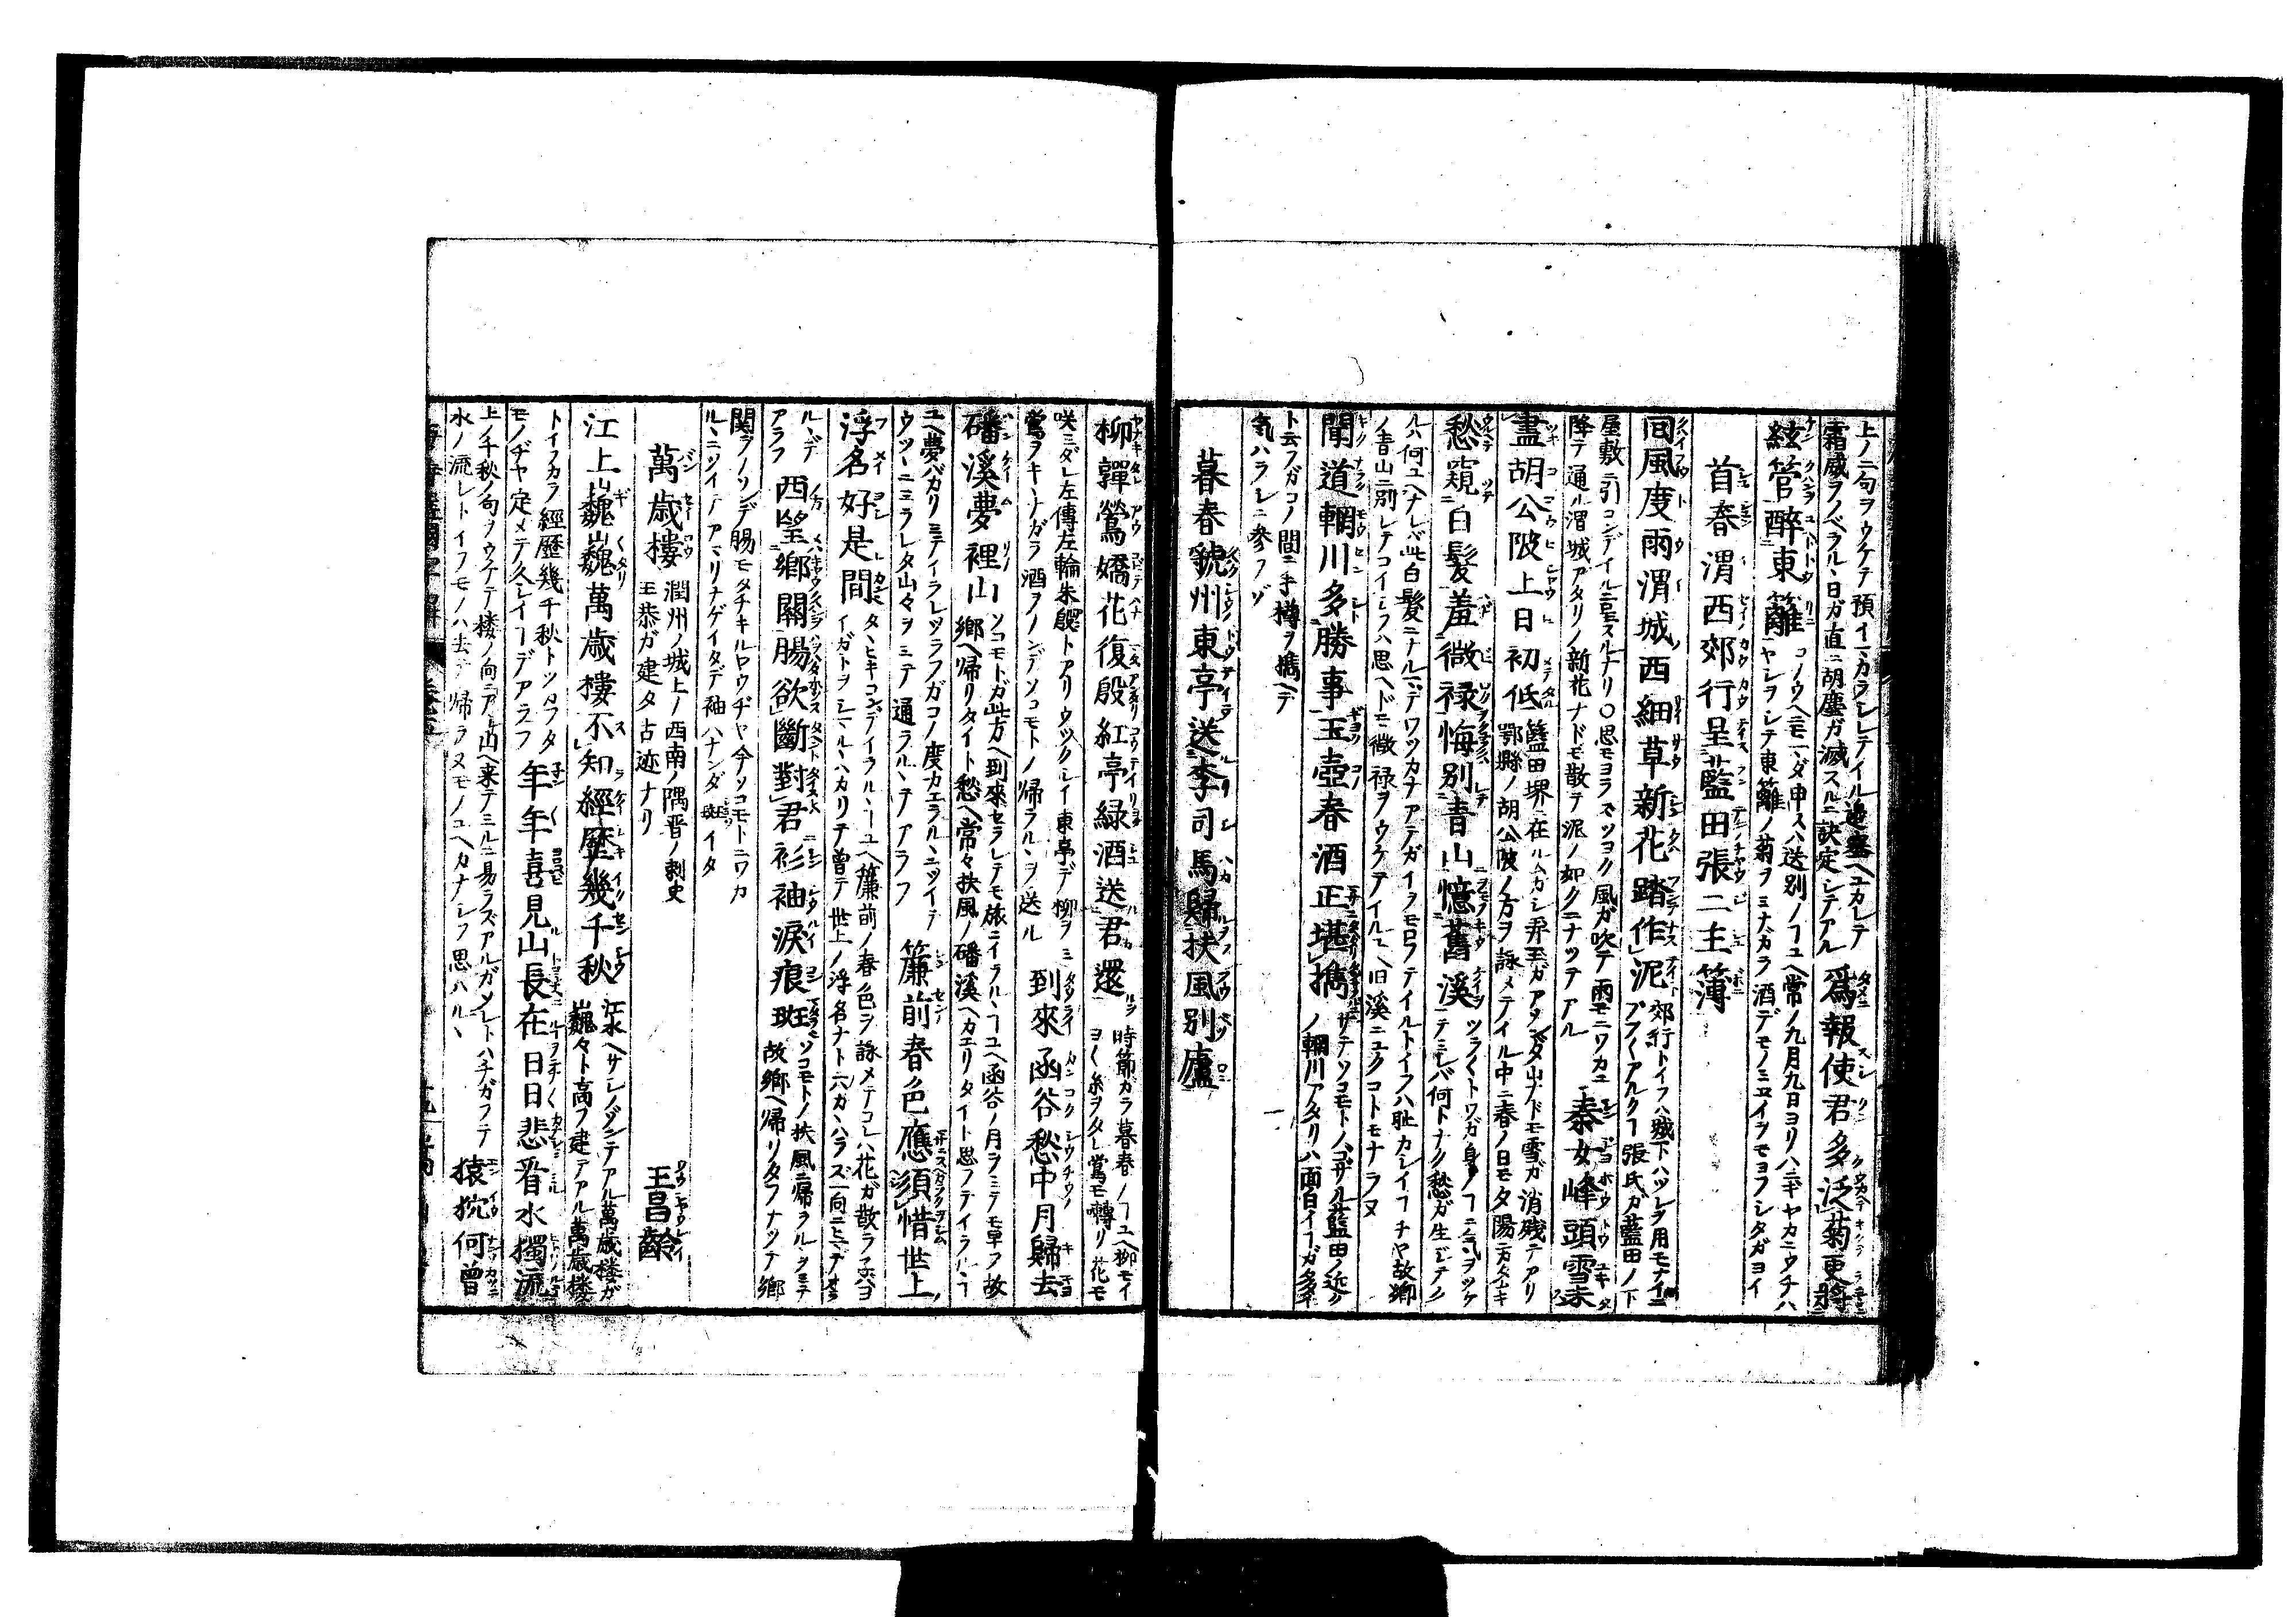 上ノ二句ヲウケテ預イマカラシレテイル邉塞ヘユカレテ
霜威ヲノベラルヽ日ガ直ニ胡塵ガ滅スルニ訣定シテアル
爲報使君多泛菊更將
絃管醉東籬
コノウヘニモマダ申スハ送別ノヿユヘ常ノ九月九日ヨリハニギヤカニウチハ
ヤシヲシテ東籬ノ菊ヲミナガラ酒デモノミヱイヲモヨフシタガヨイ
首春渭西郊行呈藍田張二主簿
囘風度雨渭城西細草新花踏作泥
郊行トイフハ城下ハヅレヲ用モナイニ
ブラ〱アルクヿ張氏ガ藍田ノ下
屋敷ニ引コンデイルニ呈スルナリ〇思モヨラズツヨク風ガ吹テ雨モニワカニ
降テ通ル渭城アタリノ新花ナドモ散テ泥ノ如クニナツテアル
秦女峰頭雪未
盡胡公陂上日初低
藍田堺ニ在ルムカシ弄玉ガアツタ山ナドモ雪ガ消残テアリ
鄠縣ノ胡公陂ノ方ヲ詠メテイル中ニ春ノ日モ夕陽ニカタムキ
愁窺白髮羞微禄悔別青山憶舊溪
ツラ〱トワガ身ノヿニ氣ヲツケ
テミレバ何トナク愁ガ生ジテク
ルハ何ユヘナレバ此白髮ニナルマデワツカナアテガイヲモロフテイルトイフハ耻カシイヿヂヤ故郷
ノ青山ニ別レテコイシフハ思ヘドモ微禄ヲウケテイルユヘ旧溪ニユクコトモナラヌ
聞道輞川多勝事玉壺春酒正堪擕
サテソコモトノゴザル藍田ノ近ク
ノ輞川アタリハ面白イヿガ多イ
ト云フガコノ間ニ手樽ヲ擕ヘテ
氣ハラシニ参フゾ
暮春虢州東亭送李司馬歸扶風別廬
柳嚲鶯嬌花復殷紅亭緑酒送君還
時節ガラ暮春ノヿユヘ柳モイ
ヨ〱糸ヲタレ鶯モ囀リ花モ
咲ミダレ左傳左輪朱殷トアリウツクシイ東亭デ柳ヲミ
鶯ヲキヽナガラ酒ヲノンデソコモトノ帰ラルヽヲ送ル
到來函谷愁中月歸去
磻溪夢裡山
ソコモトガ此方ヘ到來セラレテモ旅ニイラルヽヿユヘ函谷ノ月ヲミテモ早フ故
郷ヘ帰リタイト愁ヘ常々扶風ノ磻溪ヘカエリタイト思フテイラルヽヿ
ユヘ夢バカリミテイラレヅラフガコノ度カエラルヽニツイテ
ウツヽニミラレタ山々ヲミテ通ラルヽデアラフ
簾前春色應須惜世上
浮名好是間
タヽヒキコンデイラルヽヿユヘ簾前ノ春色ヲ詠メテコレハ花ガ散ラフカヨ
イガトヲシマルヽバカリデ曾テ世上ノ浮名ナトニハカヽハラズ一向ニヒマデオラ
ルヽデ
アラフ
西望郷關腸欲斷對君衫袖淚痕斑
ソコモトノ扶風ニ帰ラルヽヲミテ
故郷ヘ帰リタフナツテ郷
関ヲノゾンデ腸モタチキルヤウヂヤ今ソコモトニワカ
ルヽニツイテアマリナゲイタデ袖ハナンダ斑イタ
萬歳樓
潤州ノ城上ノ西南ノ隅晋ノ刺史
王恭ガ建タ古迹ナリ
王昌齡
江上巍巍萬歳樓不知經歷幾千秋
江水ヘサシノゾンデアル萬歳楼ガ
巍々ト高フ建テアル萬歳楼
トイフカラ經歴幾千秋トツカフタ
モノヂヤ定メテ久シイヿデアラフ
年年喜見山長在日日悲看水獨流
上ノ千秋ノ句ヲウケテ楼ノ向ニアル山ヘ来テミルニ易ラズアルガメレトハチガフテ
水ノ流レトイフモノハ去テ帰ラヌモノユヘカナシフ思ハルヽ
猿狖何曾